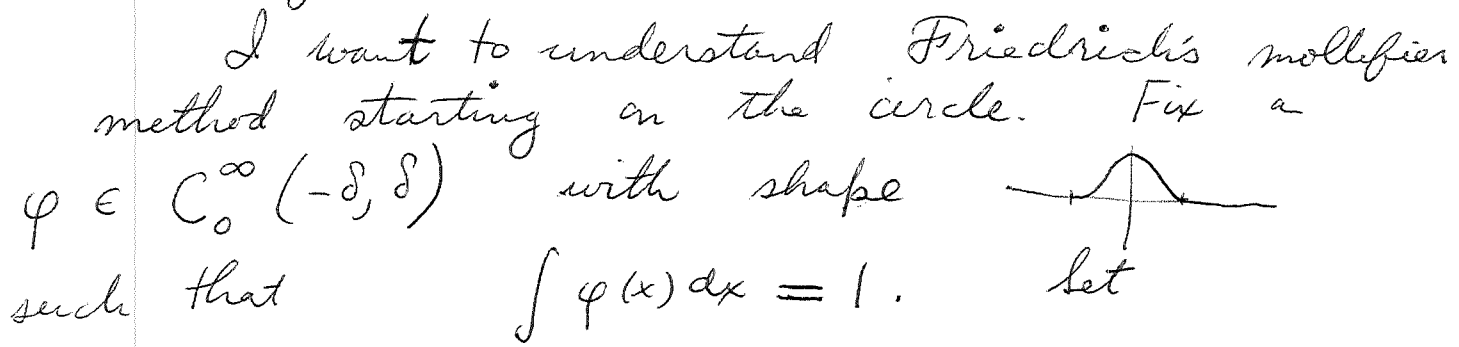 I want to understand Friedrich's mollifier
method starting on the circle. Fix a
φ ∈ C₀^∞ (-δ, δ) with shape
such that ∫ φ(x) dx = 1. Set